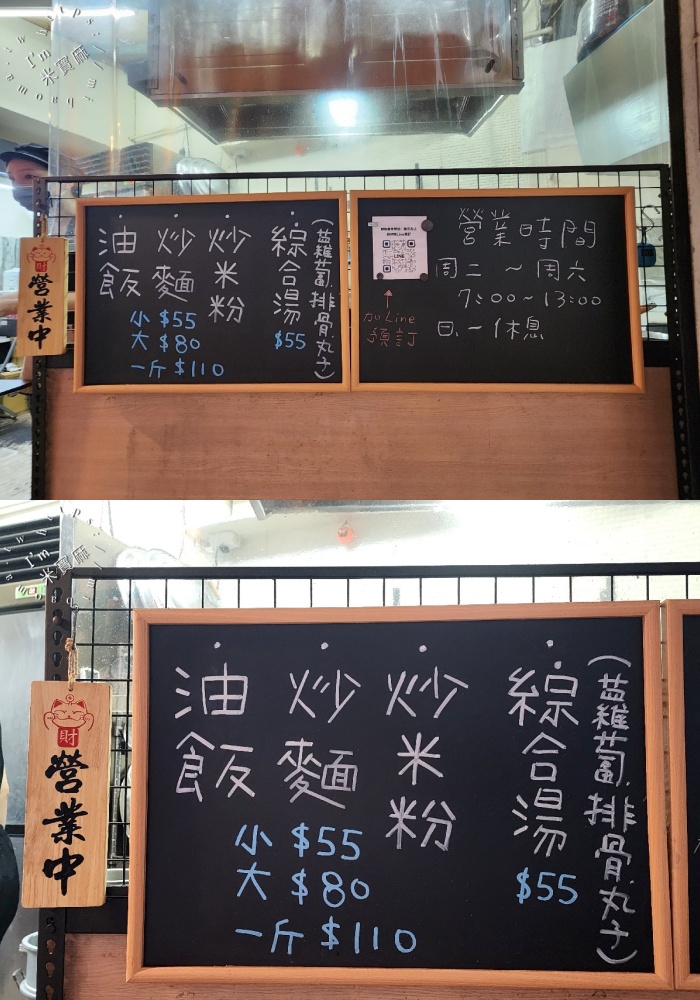 米寶麻
I'm
油飯
炒麵
炒米粉
綜合湯
(菇蘿蔔.排骨.丸子)
小 $55
大 $80
一斤 $110
$55
財
營業中
LINE
加Line
預訂
營業時間
周二 ~ 周六
7:00~13:00
日.一休息
米寶麻
I'm
油飯
炒麵
炒米粉
綜合湯
(菇蘿蔔.排骨.丸子)
小 $55
大 $80
一斤 $110
$55
財
營業中